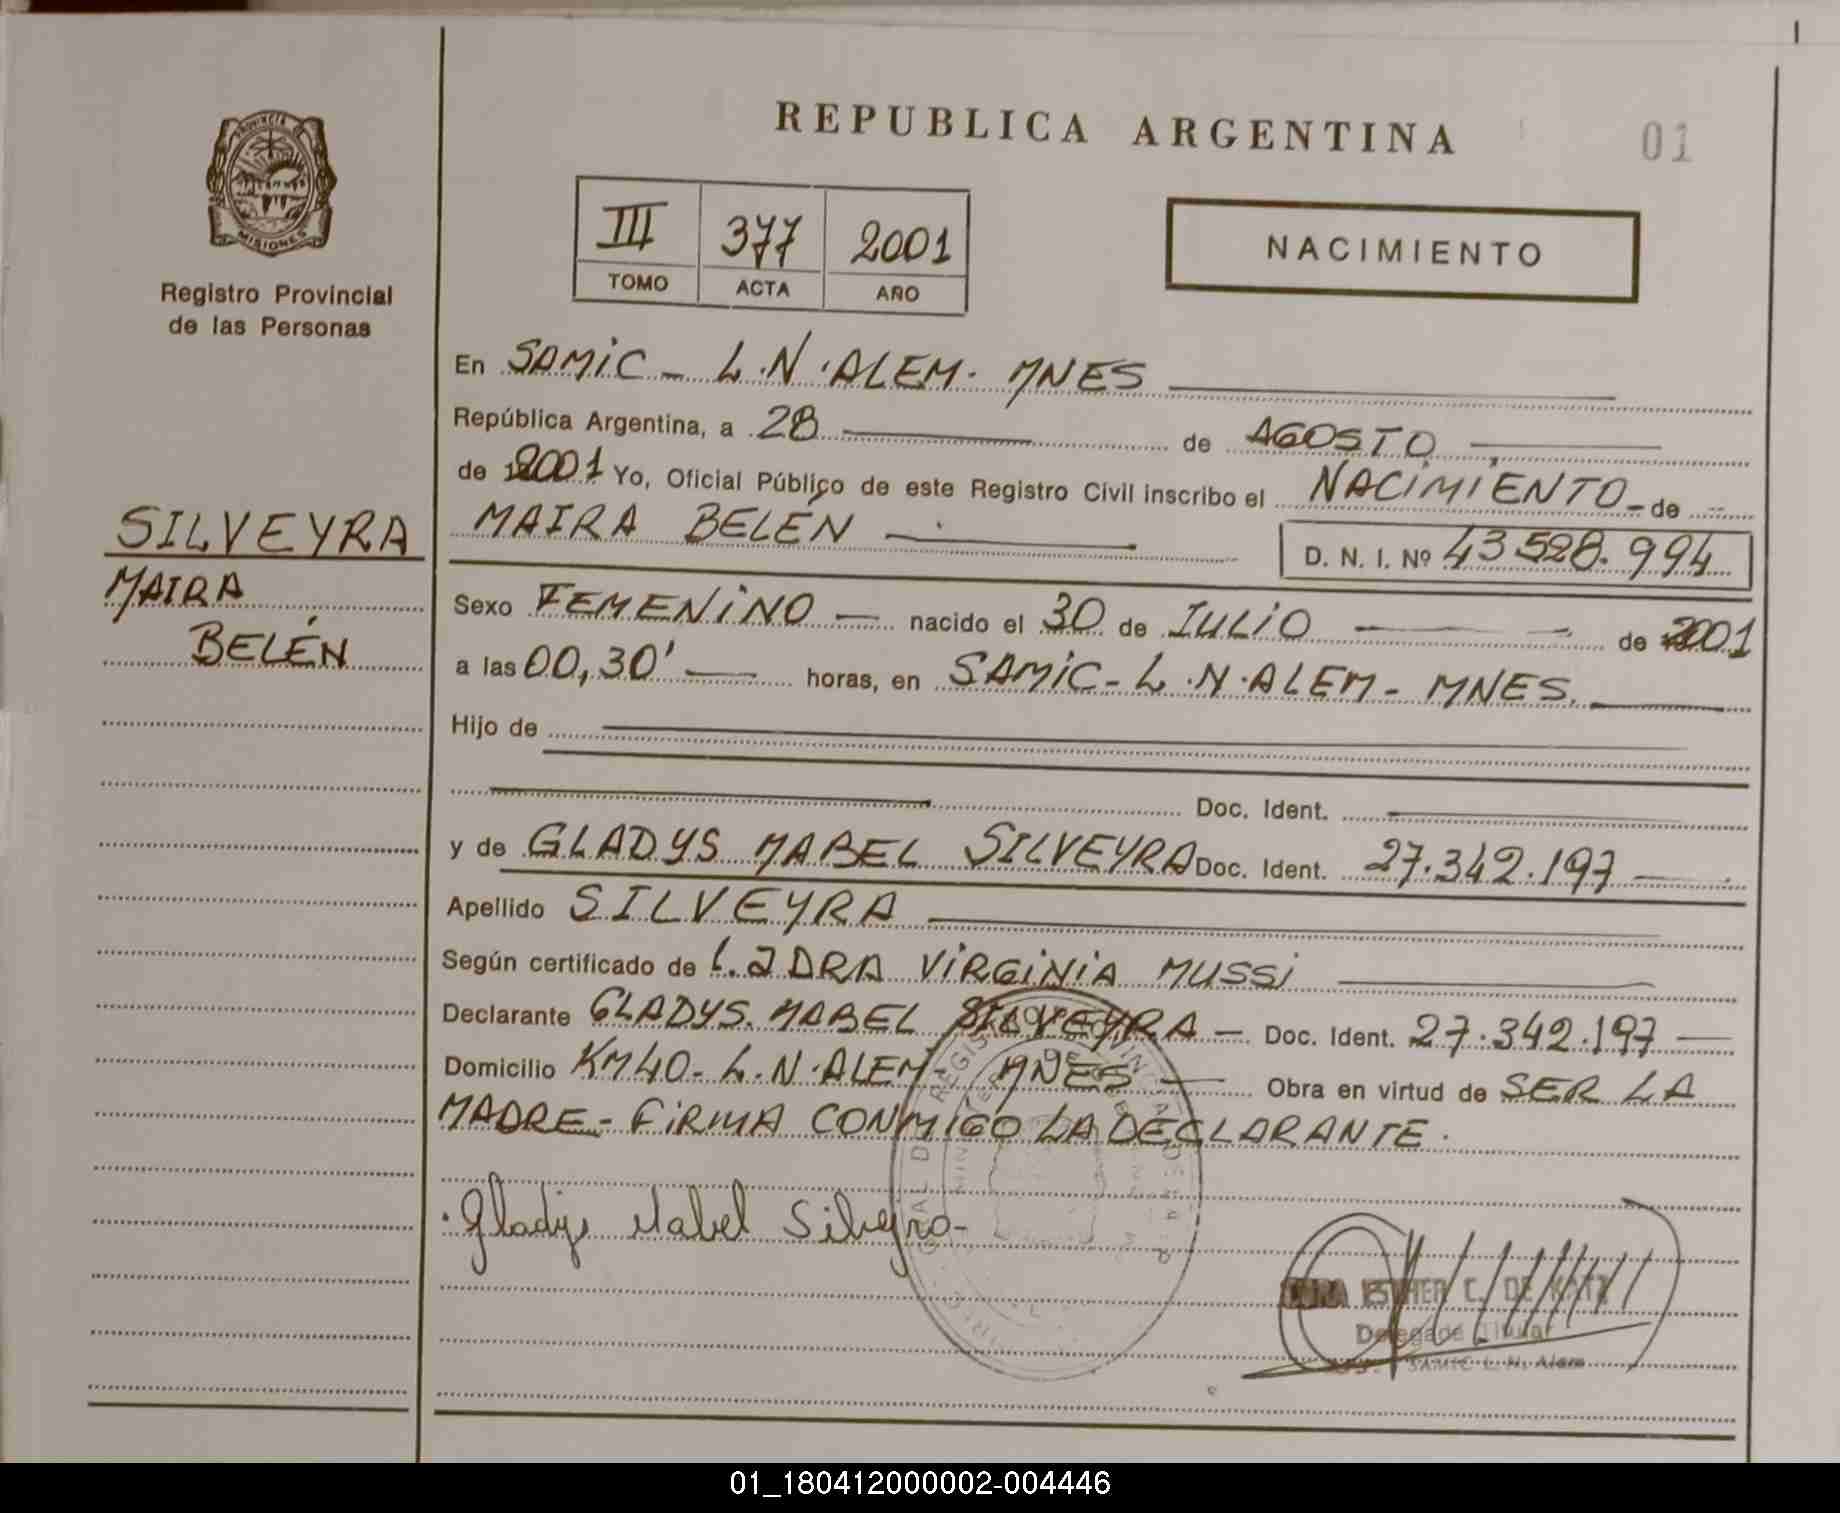 REPUBLICA ARGENTINA
01
PROVINCIA DE
MISIONES
Registro Provincial
de las Personas
III 377 2001
TOMO ACTA AÑO
NACIMIENTO
SILVEYRA
MAIRA
BELÉN
En SAMiC - L.N.ALEM. MNES
República Argentina, a 28 de AGOSTO
de 2001 Yo, Oficial Público de este Registro Civil inscribo el NACIMIENTO - de
MAIRA BELÉN D. N. I. Nº 43528.994
Sexo FEMENiNO nacido el 30 de JULiO de 2001
a las 00,30' horas, en SAMiC - L.N.ALEM - MNES.
Hijo de
Doc. Ident.
y de GLADYS MABEL SILVEYRA Doc. Ident. 27.342.197
Apellido SILVEYRA
Según certificado de DRA ViRGiNiA MUSSi
Declarante GLADYS MABEL SILVEYRA - Doc. Ident. 27.342.197
Domicilio KM40 - L.N.ALEM - MNES Obra en virtud de SER LA
MADRE - FiRMA CONMIGO LA DECLARANTE.
Gladys Mabel Silveyra
ESTHER C. DE KATZ
Delegada Titular
SAMIC L. N. Alem
01_180412000002-004446